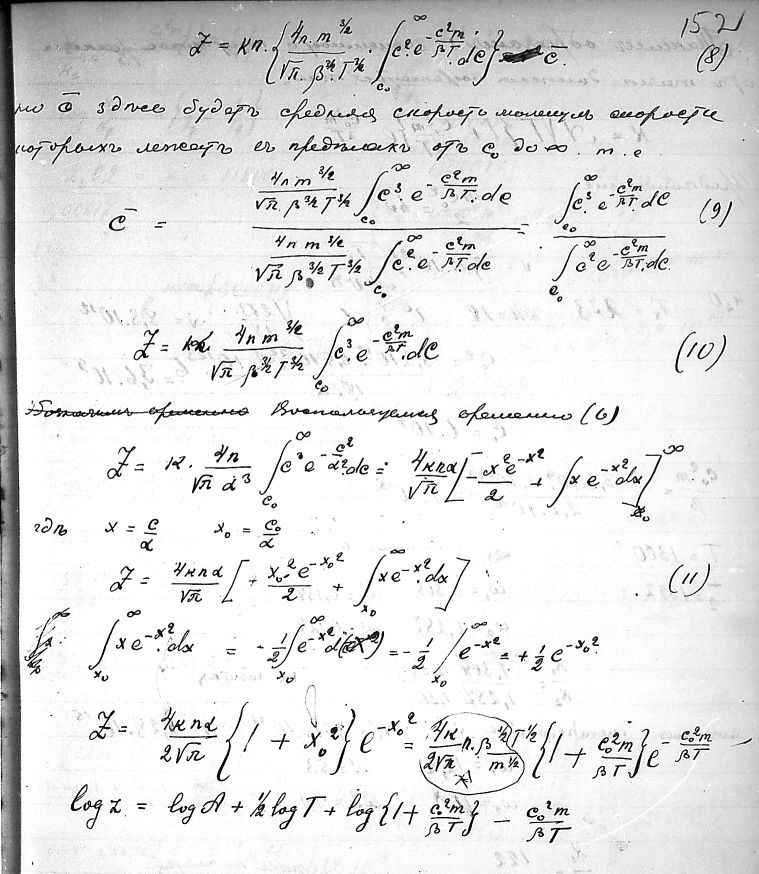 152
Z = κn. { 4n.m^{3/2} / √π. β^{3/2}. T^{3/2} . ∫_{c₀}^{∞} c². e^{-c²m/βT}. dc } c̄. (8)
но c̄ здѣсь будетъ средняя скорость молекулъ скорости
которыхъ лежатъ въ предѣлахъ отъ c₀ до ∞. т. е
c̄ = 4n m^{3/2} / √π. β^{3/2} T^{3/2} ∫_{c₀}^{∞} c³. e^{-c²m/βT}. dc / 4n m^{3/2} / √π β^{3/2} T^{3/2} ∫_{c₀}^{∞} c². e^{-c²m/βT}. dc = ∫_{c₀}^{∞} c³. e^{-c²m/βT}. dc / ∫_{c₀}^{∞} c² e^{-c²m/βT}. dc. (9)
Z = κ. 4n m^{3/2} / √π β^{3/2} T^{3/2} ∫_{c₀}^{∞} c³. e^{-c²m/βT}. dc (10)
Воспользуемся временно (6)
Z = κ. 4n / √π α³ ∫_{c₀}^{∞} c³ e^{-c²/α²}. dc = 4κnα / √π [ -x² e^{-x²} / 2 + ∫ x e^{-x²} dx ]_{x₀}^{∞}
гдѣ x = c/α x₀ = c₀/α
Z = 4κnα / √π [ + x₀² e^{-x₀²} / 2 + ∫_{x₀}^{∞} x e^{-x²}. dx ] (11)
∫_{x₀}^{∞} x e^{-x²}. dx = -½ ∫_{x₀}^{∞} e^{-x²} d(-x²) = -½ |_{x₀}^{∞} e^{-x²} = +½ e^{-x₀²}
Z = 4κnα / 2√π { 1 + x₀² } e^{-x₀²} = 4κ / 2√π n. β^{½} / m^{½} T^{½} { 1 + c₀²m / βT } e^{-c₀²m/βT}
log z = log A + ½ log T + log { 1 + c₀²m / βT } - c₀²m / βT